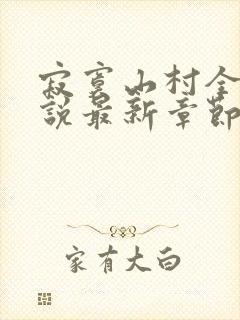 寂寞山村全
說最新章節
家有大白